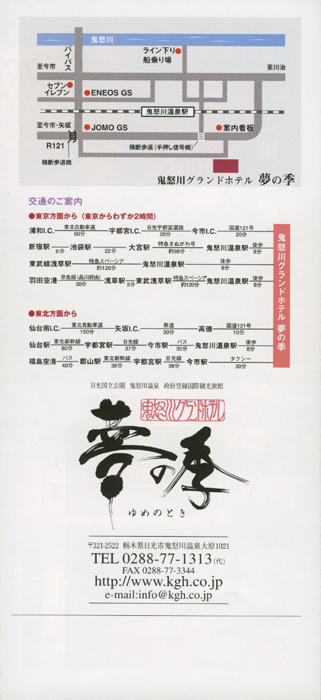 鬼怒川
バイパス
ライン下り
船乗り場
至今市
至川治
セブン
イレブン
ENEOS GS
鬼怒川温泉駅
至今市・矢坂
JOMO GS
案内看板
R121
横断歩道橋
横断歩道(手押し信号機)
鬼怒川グランドホテル 夢の季
交通のご案内
●東京方面から(東京からわずか2時間)
浦和I.C. 東北自動車道 60分 宇都宮I.C. 日光宇都宮道路 20分 今市I.C. 国道121号 20分
新宿駅 6分 池袋駅 22分 大宮駅 特急きぬがわ号 約98分 鬼怒川温泉駅 徒歩 8分
東武線浅草駅 特急スペーシア 約120分 鬼怒川温泉駅 徒歩 8分
羽田空港 京急線(品川経由) 50分 浅草駅 5分 東武浅草駅 特急スペーシア 約120分 鬼怒川温泉駅 徒歩 8分
鬼怒川グランドホテル 夢の季
●東北方面から
仙台南I.C. 東北自動車道 150分 矢坂I.C. 県道 30分 高徳 国道121号 10分
仙台駅 東北新幹線 80分 宇都宮駅 日光線 37分 今市駅 バス 30分 鬼怒川温泉駅 徒歩 8分
福島空港 バス 40分 郡山駅 東北新幹線 38分 宇都宮駅 日光線 36分 今市駅 タクシー 30分
日光国立公園 鬼怒川温泉 政府登録国際観光旅館
鬼怒川グランドホテル
夢の季
ゆめのとき
〒321-2522 栃木県日光市鬼怒川温泉大原1021
TEL 0288-77-1313(代)
FAX 0288-77-3344
http://www.kgh.co.jp
e-mail:info@kgh.co.jp